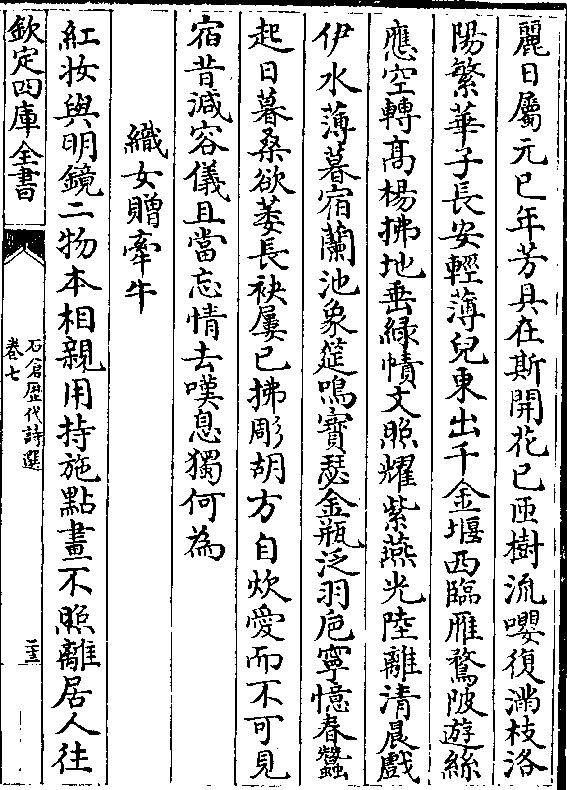 麗日屬元巳年芳具在斯開花已匝樹流嚶復滿枝洛
陽繁華子長安輕薄兒東出千金堰西臨雁鶩陂遊絲
應空轉髙楊拂地垂緑幘文照耀紫燕光陸離清晨戲
伊水薄暮宿蘭池象筵鳴寶瑟金瓶泛羽巵寧憶春蠶
起日暮桑欲萎長袂屢已拂彫胡方自炊愛而不可見
宿昔減容儀且當忘情去嘆息獨何為
織女贈牽牛
紅妝與明鏡二物本相親用持施點畫不照離居人往
欽定四庫全書
石倉歴代詩選
卷七
二十三